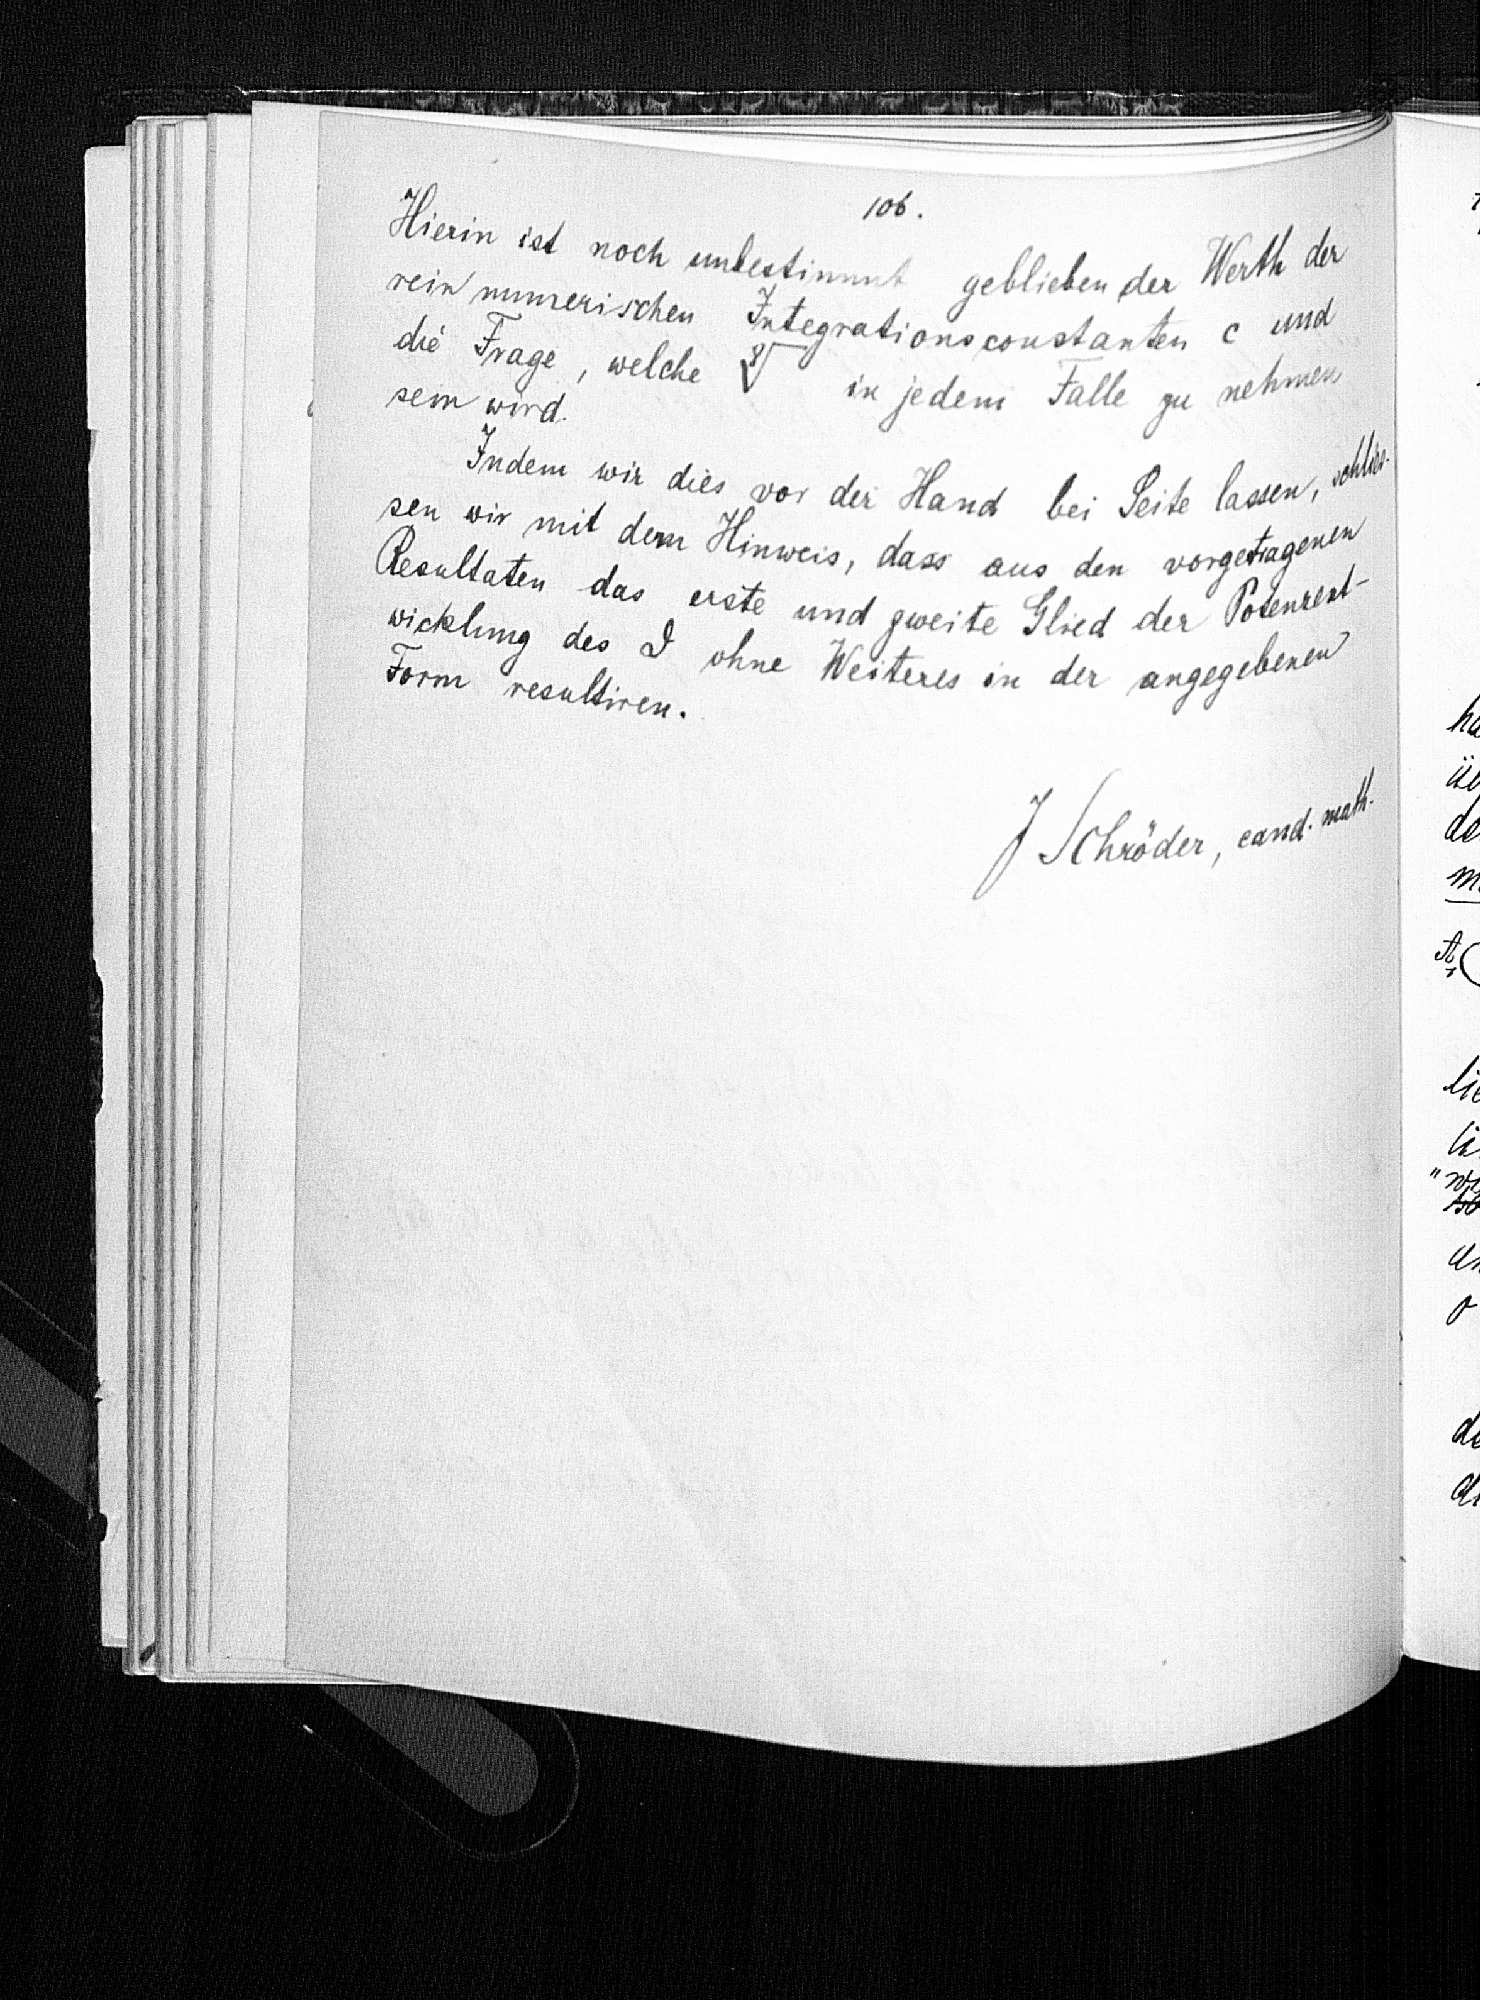 106.
Hierin ist noch unbestimmt geblieben der Werth der
rein numerischen Integrationsconstanten c und
die Frage, welche ⁸√ in jedem Falle zu nehmen
sein wird.
Indem wir dies vor der Hand bei Seite lassen, schlies-
sen wir mit dem Hinweis, dass aus den vorgetragenen
Resultaten das erste und zweite Glied der Potenzent-
wicklung des ϑ ohne Weiteres in der angegebenen
Form resultiren.
J Schröder, cand. math.